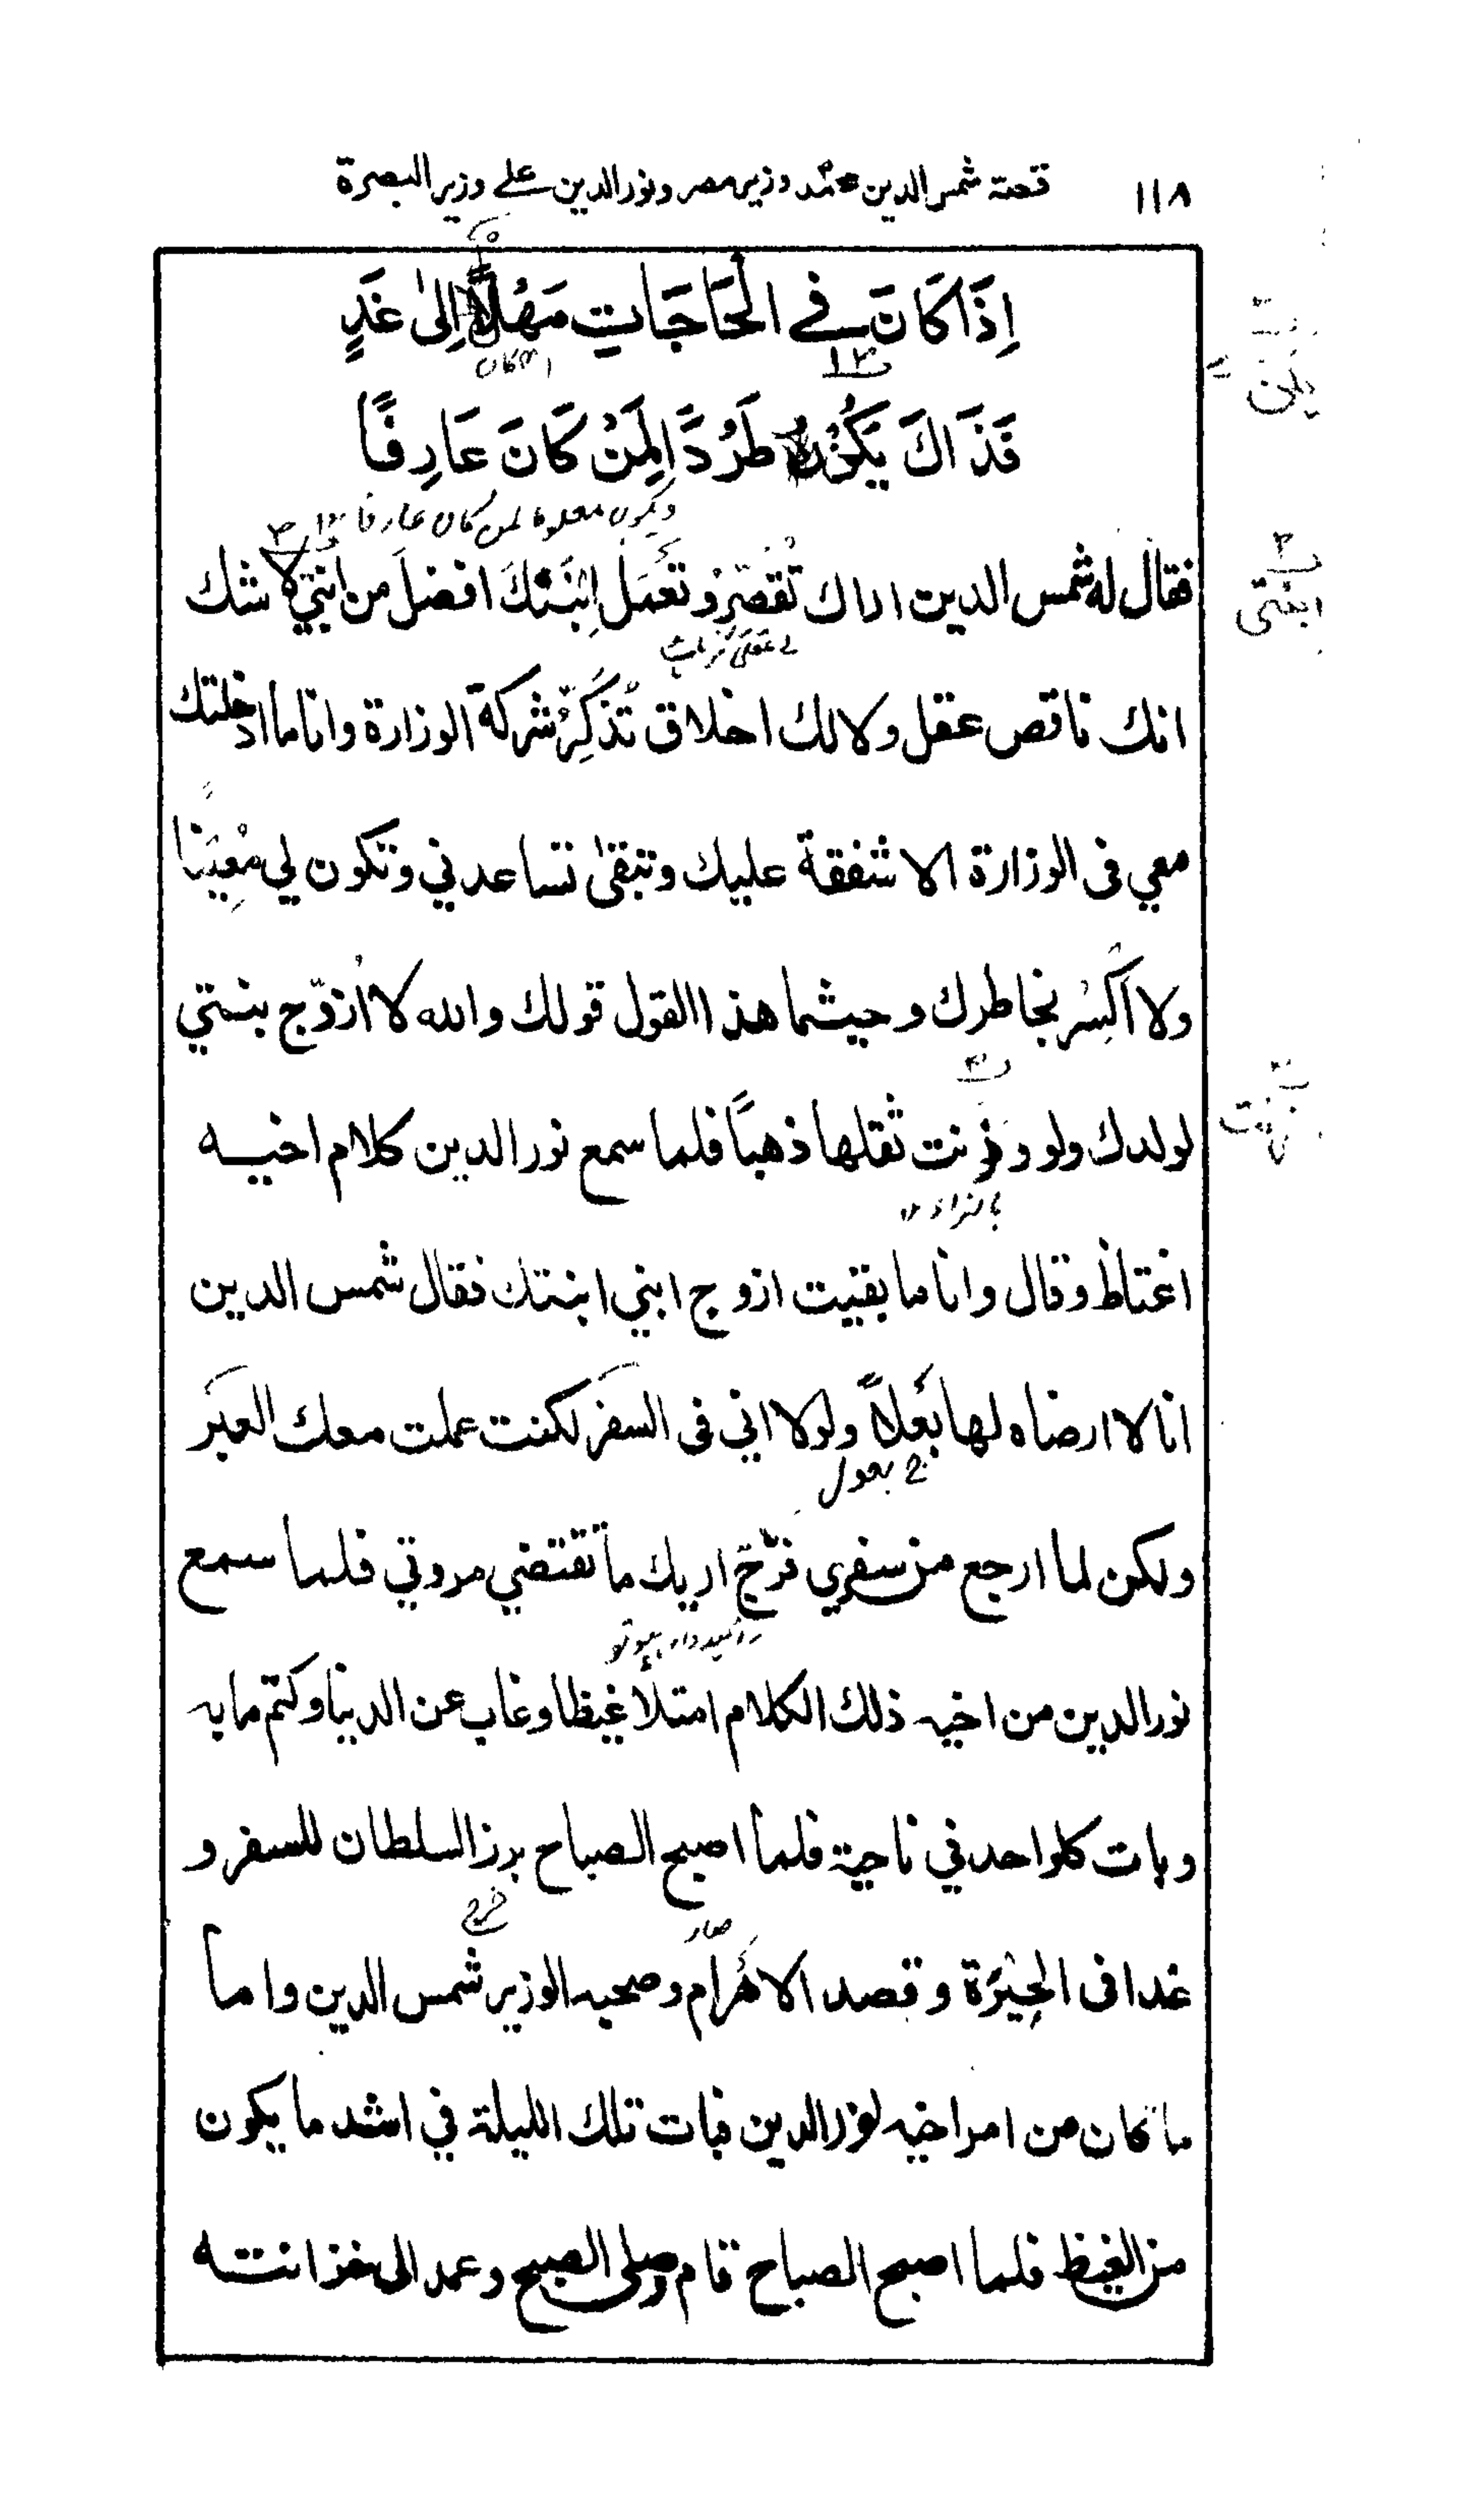 ١١٨ قصة شمس الدين محمد وزير مصر ونور الدين علي وزير البصرة
اِذَا كَانَ في الحَاجَاتِ مَهْلًا اِلىٰ غَدٍ
فَذَاكَ يَكُوْنُ طَرْدَا لِمَنْ كَانَ عَارِفًا
فقال له شمس الدين اراك تُقصّر وتعمَل اِبْنَكَ افضلَ من ابنتي لا شك
انك ناقص عقل ولا لك اخلاق تُذكِرُ شركة الوزارة وانا ما ادخلتك
معي فى الوزارة الا شفقة عليك وتبقىٰ تساعدني وتكون لي مُعِيْنًا
ولا اكسِرُ بخاطرك وحيثما هذا القول قولك والله لا اُزوّج بنتي
لولدك ولو وزنت ثقلها ذهبًا فلما سمع نور الدين كلام اخيه
اغتاظ وقال وانا ما بقيت ازوج ابني ابنتك فقال شمس الدين
انا لا ارضاه لها بَعْلًا ولولا اني فى السفر لكنت عملت معك العِبَر
ولكن لما ارجع من سفري اريك ما تقتضي مروتي فلما سمع
نور الدين من اخيه ذلك الكلام امتلأ غيظا وغاب عن الدنيا وكتم ما به
وبات كلواحد في ناحية فلما اصبح الصباح برز السلطان للسفر و
غدا فى الجِيْزَة وقصد الاهْرَام وصحبه الوزير شمس الدين واما
ما كان من امر اخيه نور الدين فبات تلك الليلة في اشد ما يكون
من الغيظ فلما اصبح الصباح قام وصلى الصبح وعمد الى خزانته